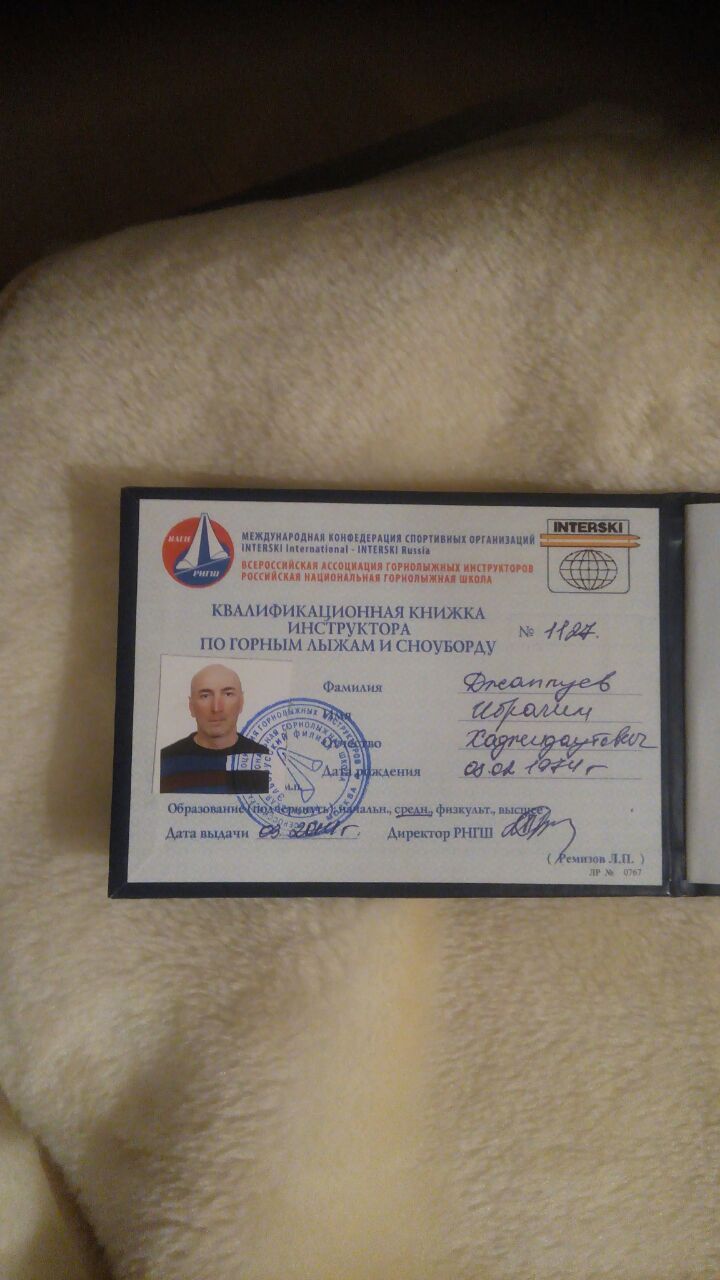 ВАГИ
РНГШ
МЕЖДУНАРОДНАЯ КОНФЕДЕРАЦИЯ СПОРТИВНЫХ ОРГАНИЗАЦИЙ
INTERSKI International - INTERSKI Russia
ВСЕРОССИЙСКАЯ АССОЦИАЦИЯ ГОРНОЛЫЖНЫХ ИНСТРУКТОРОВ
РОССИЙСКАЯ НАЦИОНАЛЬНАЯ ГОРНОЛЫЖНАЯ ШКОЛА
INTERSKI
КВАЛИФИКАЦИОННАЯ КНИЖКА
ИНСТРУКТОРА
ПО ГОРНЫМ ЛЫЖАМ И СНОУБОРДУ
№ 1127.
Фамилия Джаппуев
Имя Ибрагим
Отчество Хаджидаутович
Дата рождения 1974 г
М.П.
Образование (подчеркнуть): начальн., средн., физкульт., высшее
Дата выдачи 03 Директор РНГШ
( Ремизов Л.П. )
ЛР № 0767